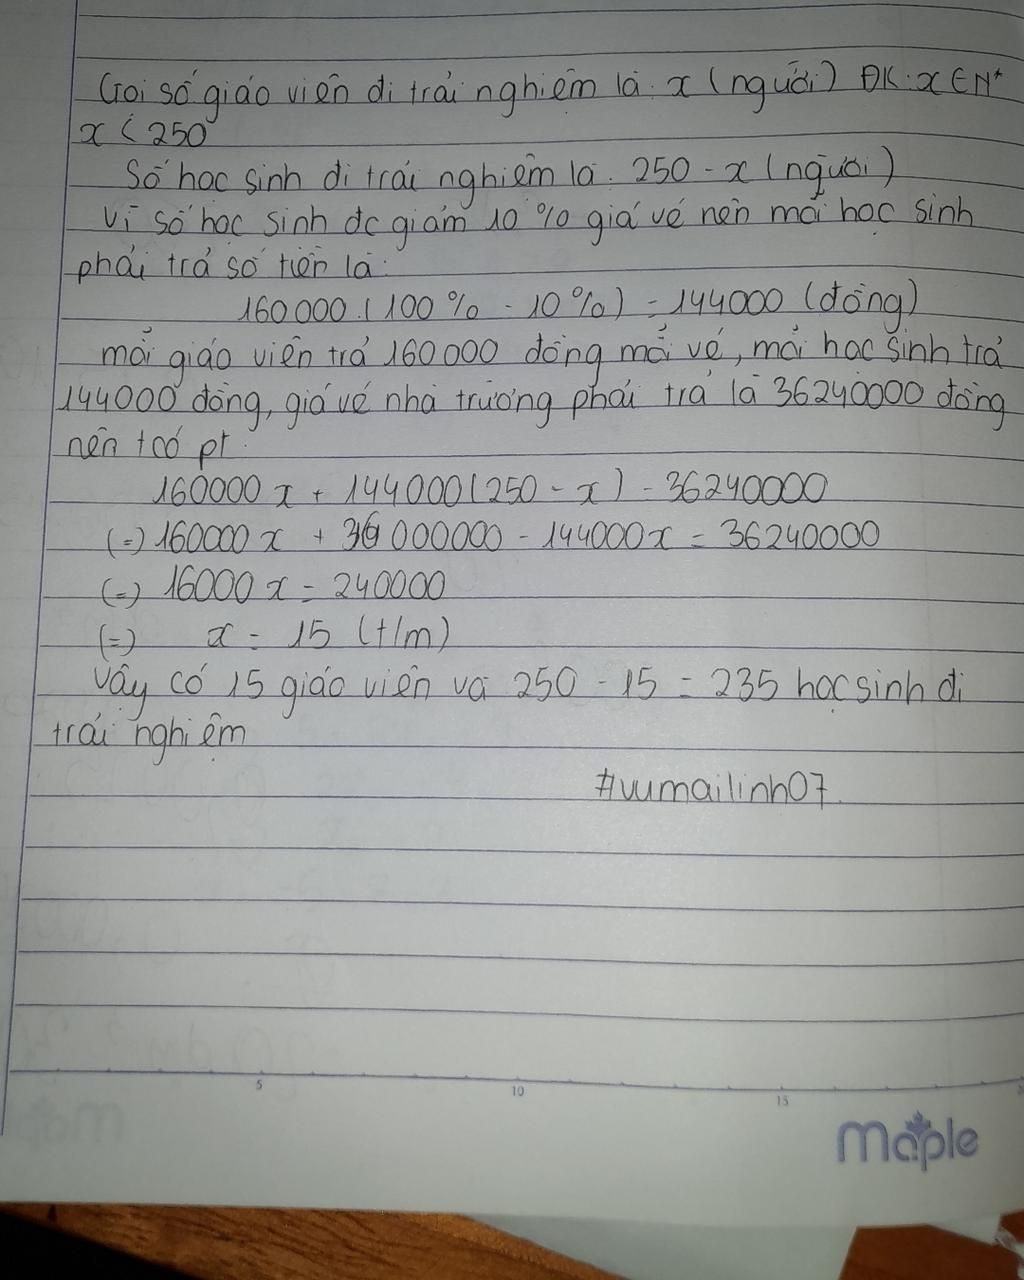 Gọi số giáo viên đi trải nghiệm là: x (người) ĐK: x ∈ N*
x < 250
Số học sinh đi trải nghiệm là: 250 - x (người)
Vì số học sinh đc giảm 10% giá vé nên mỗi học sinh
phải trả số tiền là:
160000.(100% - 10%) = 144000 (đồng)
mỗi giáo viên trả 160000 đồng mỗi vé, mỗi học sinh trả
144000 đồng, giá vé nhà trường phải trả là 36240000 đồng
nên tcó pt:
160000x + 144000(250 - x) = 36240000
(=) 160000x + 36000000 - 144000x = 36240000
(=) 16000x = 240000
(=) x = 15 (t/m)
Vậy có 15 giáo viên và 250 - 15 = 235 học sinh đi
trải nghiệm
#vumailinh07.
5 10 15
maple